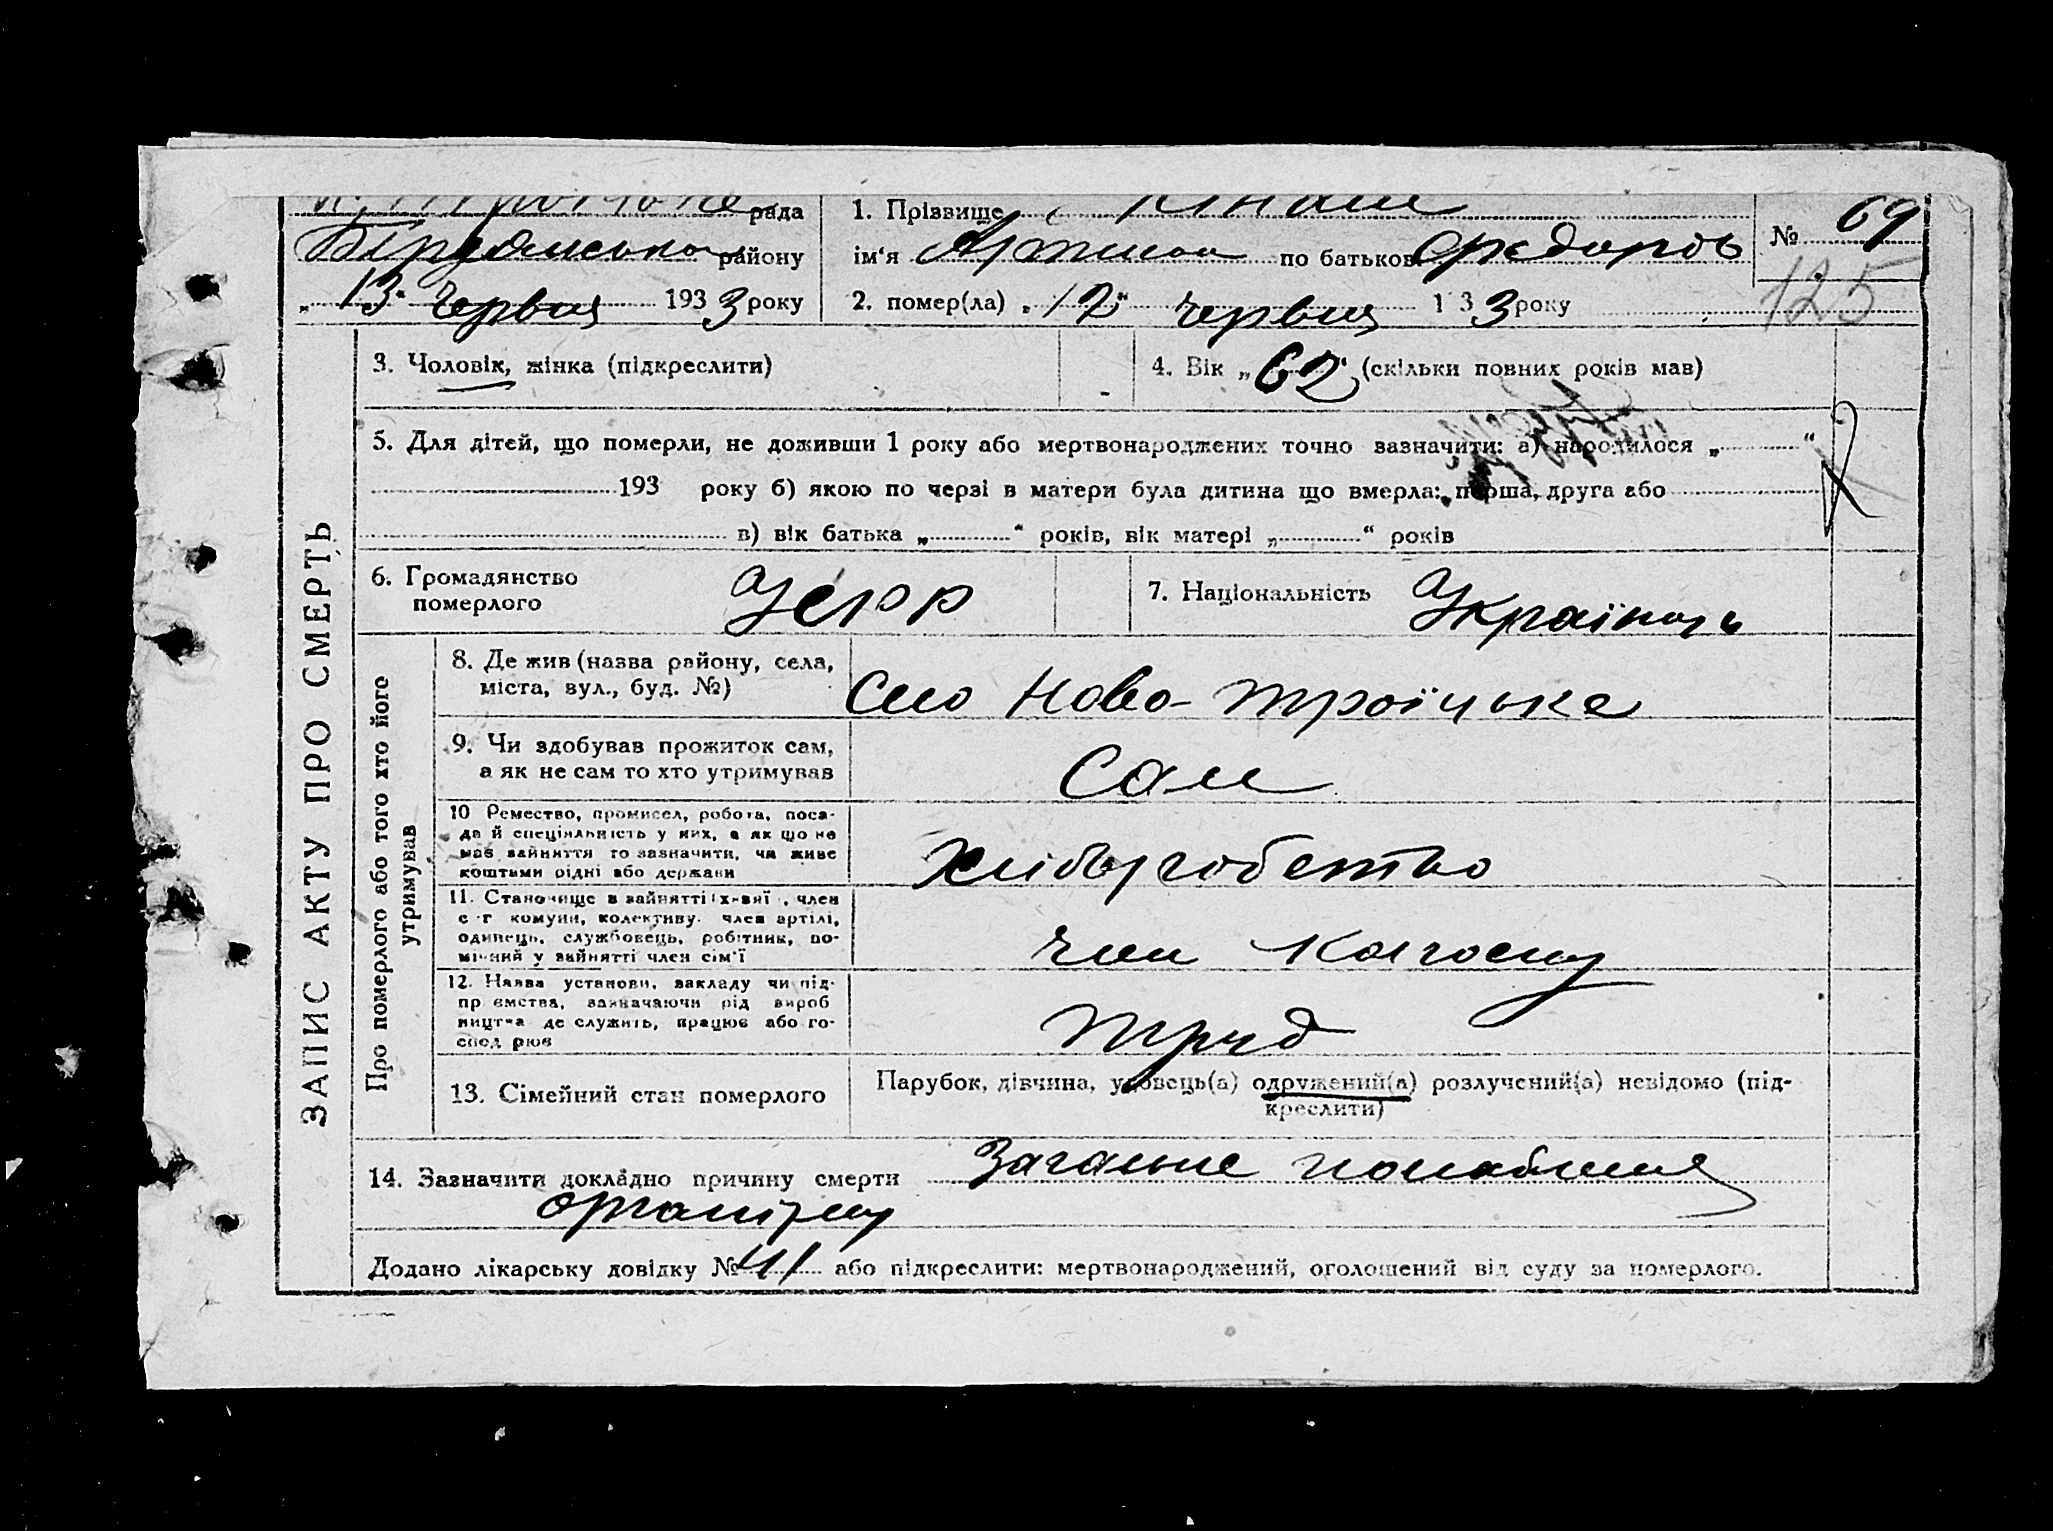 рада
1. Прізвище Кнаш
№ 69
району
ім'я по батькові Фєдоров
125
„13“ Червця 1933 року
2. помер(ла) „12“ Червця 1 33 року
ЗАПИС АКТУ ПРО СМЕРТЬ
3. Чоловік, жінка (підкреслити)
4. Вік „62“ (скільки повних років мав)
5. Для дітей, що померли, не доживши 1 року або мертвонароджених точно зазначити: а) народилося „ “
193 року б) якою по черзі в матери була дитина що вмерла: перша, друга або
в) вік батька „ “ років, вік матері „ “ років
6. Громадянство померлого УСРР
7. Національність Українць
Про померлого або того хто його утримував
8. Де жив (назва району, села,
міста, вул., буд. №)
Село Ново-Троїцьке
9. Чи здобував прожиток сам,
а як не сам то хто утримував
Сам
10 Ремество, промисел, робота, поса-
да й спеціяльність у них, а як що не
має зайняття то зазначити, чи живе
коштами рідні або держави
Хліборобство
11. Становище в зайнятті , член
с-г комуни, колективу член артілі,
одинець, службовець, робітник, по-
мічний у зайнятті член сім'ї
член колгоспу
12. Назва установи, закладу чи під-
пр ємства, зазначаючи рід вироб
ництва де служить, працює або го-
спод рює
Труд
13. Сімейний стан померлого
Парубок, дівчина, удовець(а) одружений(а) розлучений(а) невідомо (під-
креслити)
14. Зазначити докладно причину смерти Загальне послаблення
організму
Додано лікарську довідку № 41 або підкреслити: мертвонароджений, оголошений від суду за померлого.